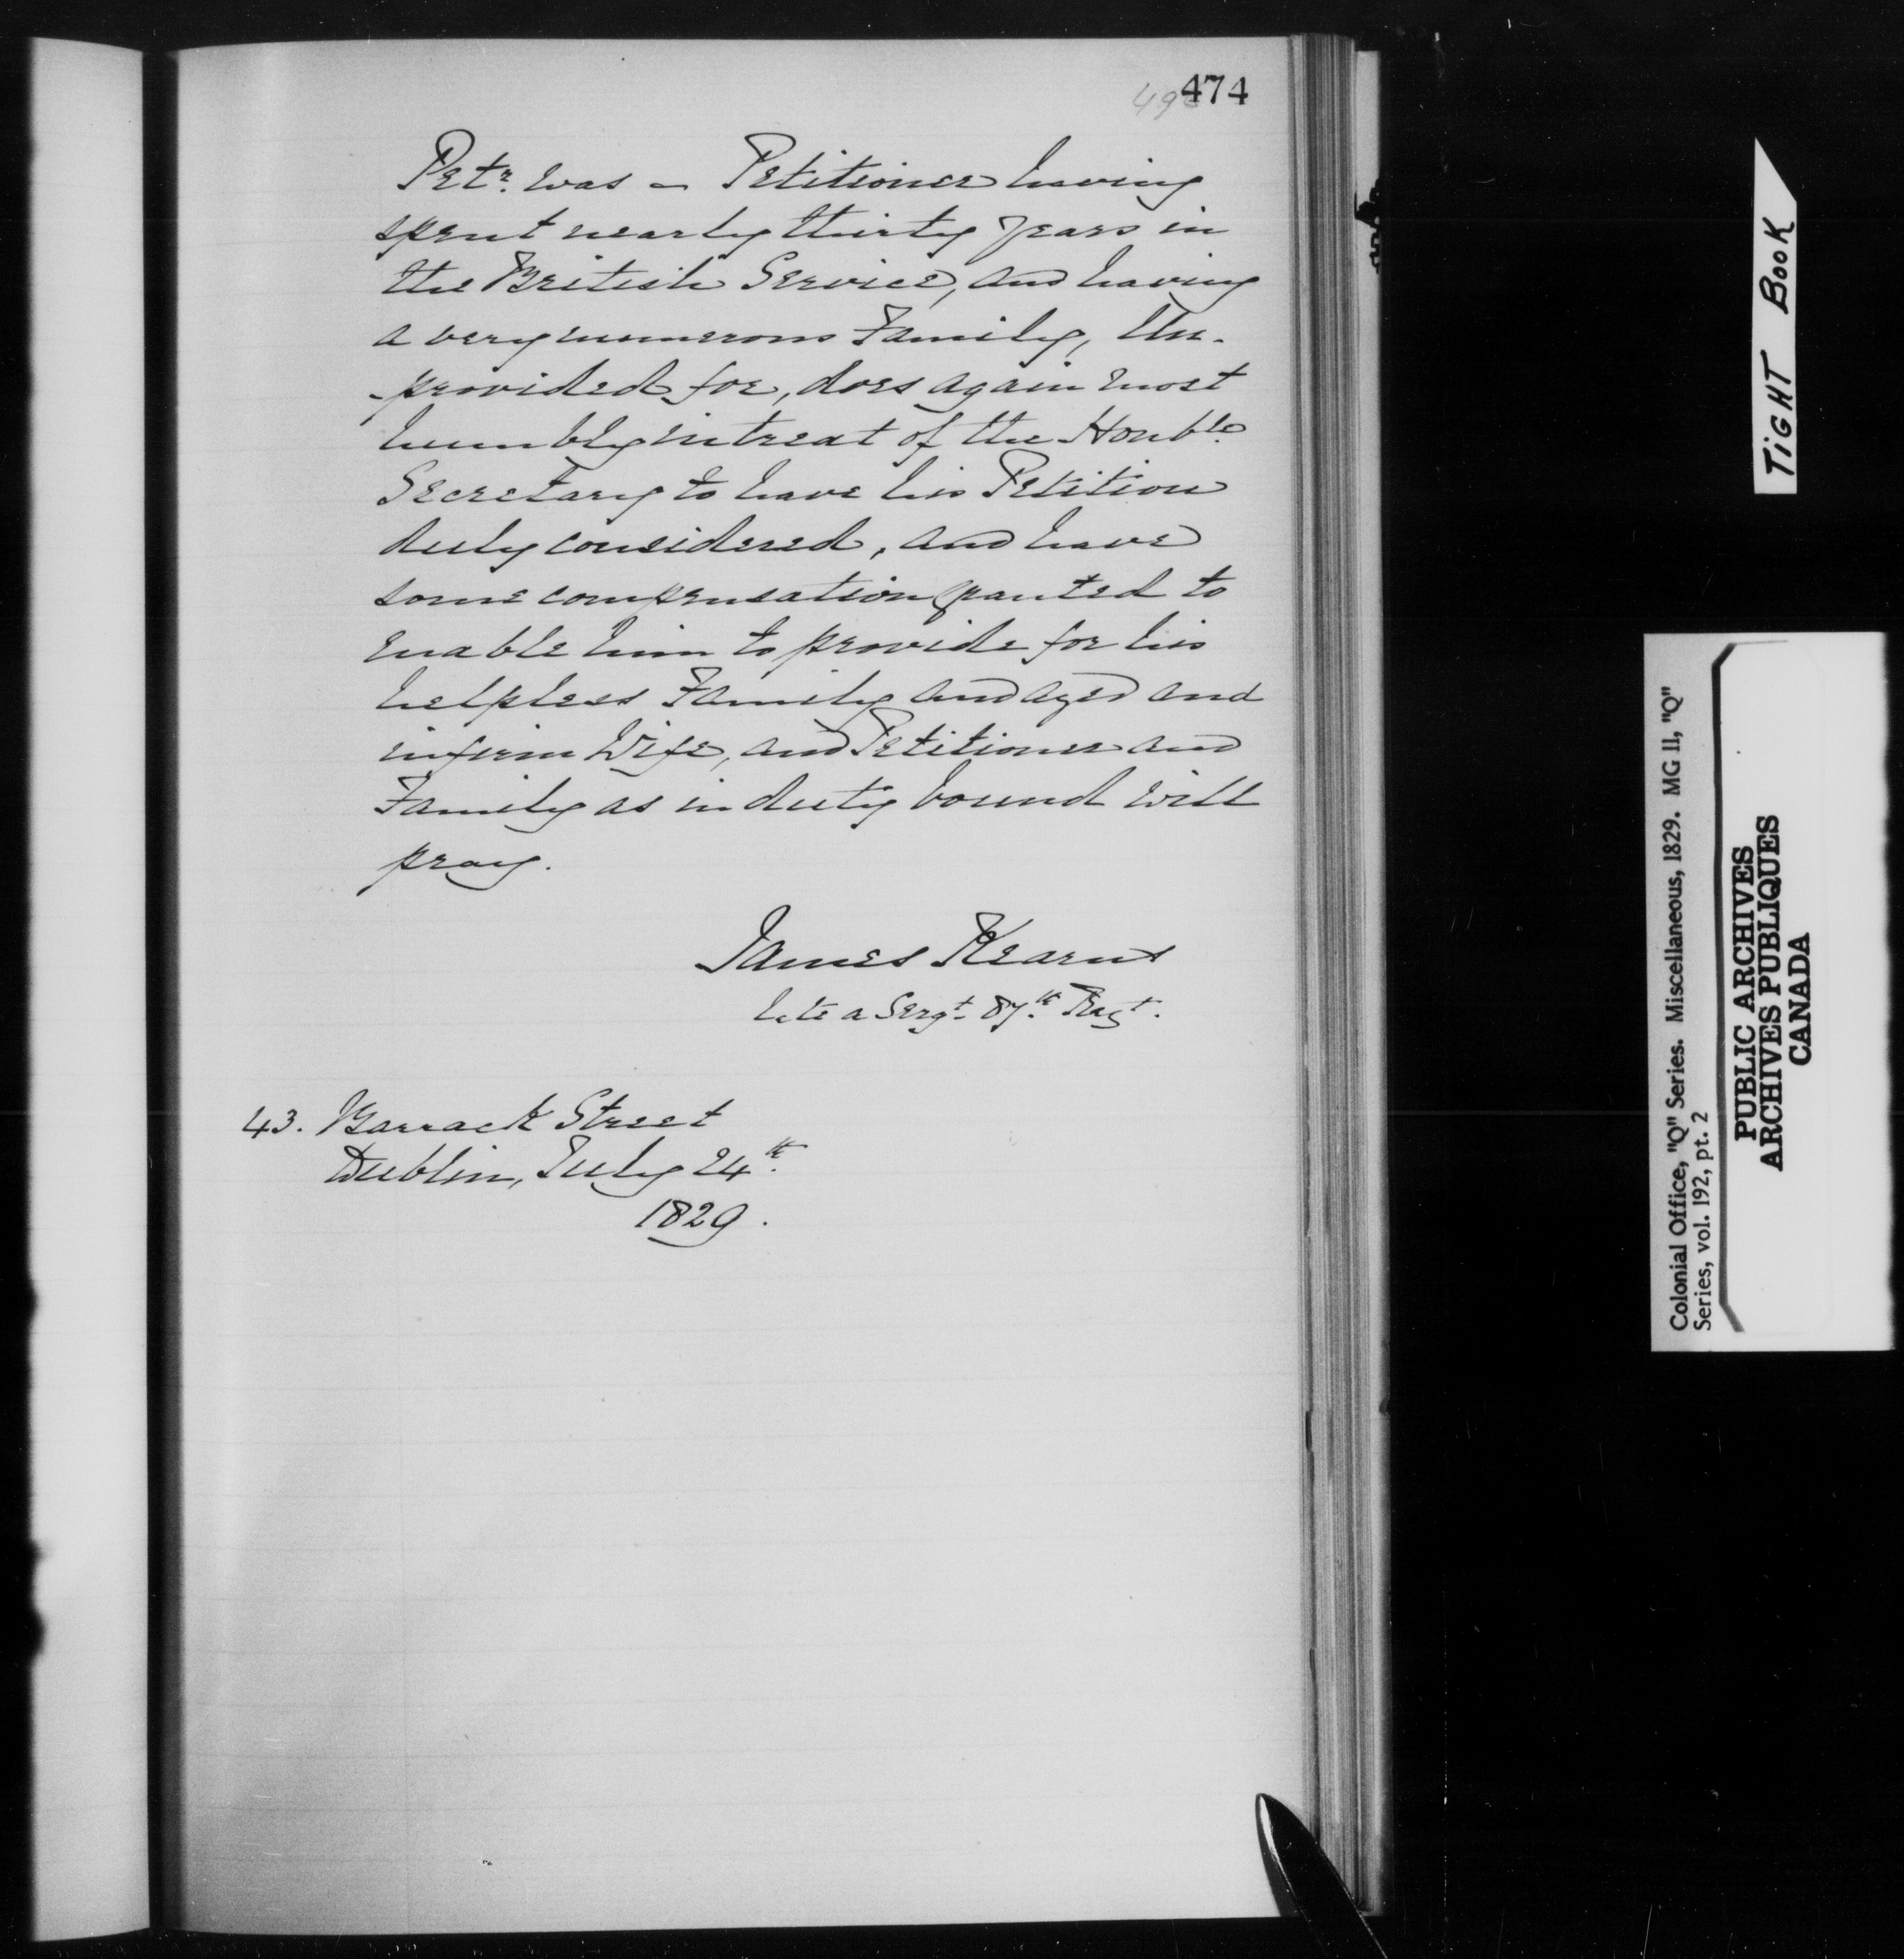 474
Petr. was - Petitioner having
spent nearly thirty years in
the British Service, and having
a very numerous Family, Un-
-provided for, does again most
humbly intreat of the Honble.
Secretary to have his Petition
duly considered, and have
some compensation granted to
enable him to provide for his
helpless Family and aged and
infirm Wife, and Petitioner and
Family as in duty bound will
pray.
James Kearns
late a Sergt. 87th. Regt.
43. Barrack Street
Dublin, July 24th.
1829.
TIGHT BOOK
Colonial Office, "Q" Series. Miscellaneous, 1829. MG 11, "Q"
Series, vol. 192, pt. 2
PUBLIC ARCHIVES
ARCHIVES PUBLIQUES
CANADA